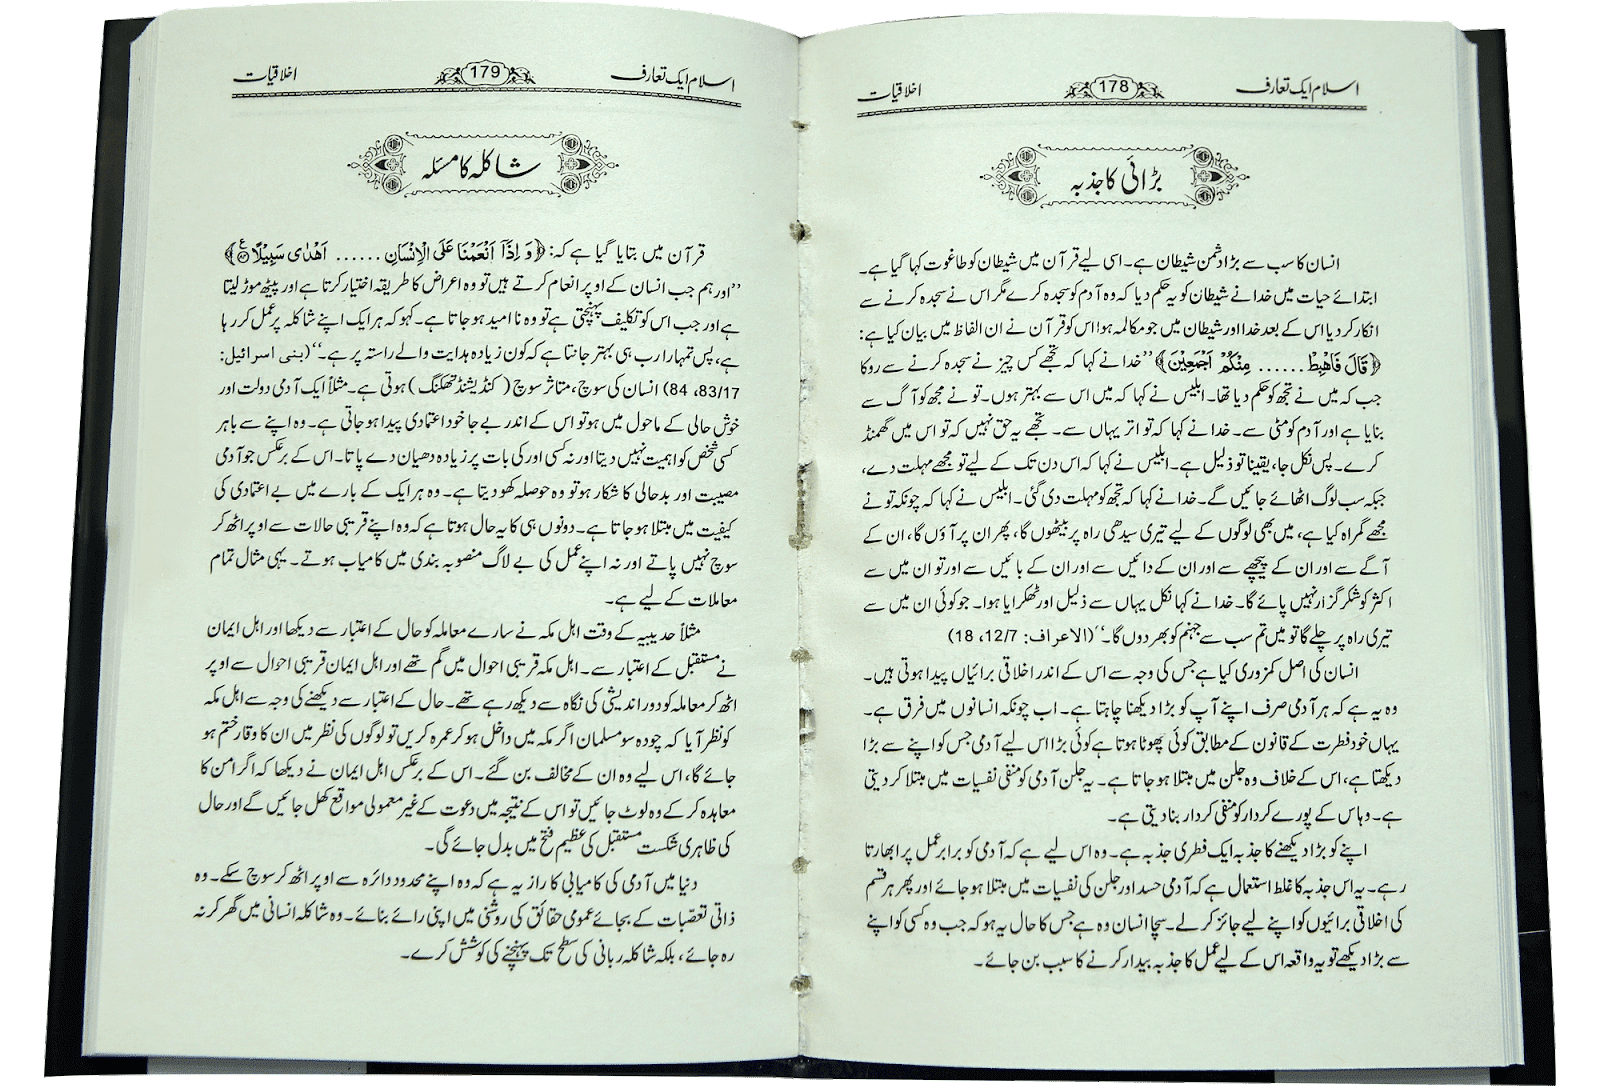 اسلام ایک تعارف 178 اخلاقیات
بڑائی کا جذبہ
انسان کا سب سے بڑا دشمن شیطان ہے۔ اسی لیے قرآن میں شیطان کو طاغوت کہا گیا ہے۔
ابتدائے حیات میں خدا نے شیطان کو یہ حکم دیا کہ وہ آدم کو سجدہ کرے مگر اس نے سجدہ کرنے سے
انکار کر دیا اس کے بعد خدا اور شیطان میں جو مکالمہ ہوا اس کو قرآن نے ان الفاظ میں بیان کیا ہے:
﴿قَالَ فَاهْبِطْ ...... مِنْكُمْ اَجْمَعِيْنَ﴾ ’’خدا نے کہا کہ تجھے کس چیز نے سجدہ کرنے سے روکا
جب کہ میں نے تجھ کو حکم دیا تھا۔ ابلیس نے کہا کہ میں اس سے بہتر ہوں۔ تو نے مجھ کو آگ سے
بنایا ہے اور آدم کو مٹی سے۔ خدا نے کہا کہ تو اتر یہاں سے۔ تجھے یہ حق نہیں کہ تو اس میں گھمنڈ
کرے۔ پس نکل جا، یقینا تو ذلیل ہے۔ ابلیس نے کہا کہ اس دن تک کے لیے تو مجھے مہلت دے،
جبکہ سب لوگ اٹھائے جائیں گے۔ خدا نے کہا کہ تجھ کو مہلت دی گئی۔ ابلیس نے کہا کہ چونکہ تو نے
مجھے گمراہ کیا ہے، میں بھی لوگوں کے لیے تیری سیدھی راہ پر بیٹھوں گا، پھر ان پر آؤں گا، ان کے
آگے سے اور ان کے پیچھے سے اور ان کے دائیں سے اور ان کے بائیں سے اور تو ان میں سے
اکثر کو شکر گزار نہیں پائے گا۔ خدا نے کہا نکل یہاں سے ذلیل اور ٹھکرایا ہوا۔ جو کوئی ان میں سے
تیری راہ پر چلے گا تو میں تم سب سے جہنم کو بھر دوں گا۔‘‘ (الاعراف: 12/7، 18)
انسان کی اصل کمزوری کیا ہے جس کی وجہ سے اس کے اندر اخلاقی برائیاں پیدا ہوتی ہیں۔
وہ یہ ہے کہ ہر آدمی صرف اپنے آپ کو بڑا دیکھنا چاہتا ہے۔ اب چونکہ انسانوں میں فرق ہے۔
یہاں خود فطرت کے قانون کے مطابق کوئی چھوٹا ہوتا ہے کوئی بڑا اس لیے آدمی جس کو اپنے سے بڑا
دیکھتا ہے، اس کے خلاف وہ جلن میں مبتلا ہو جاتا ہے۔ یہ جلن آدمی کو منفی نفسیات میں مبتلا کر دیتی
ہے۔ وہ اس کے پورے کردار کو منفی کردار بنا دیتی ہے۔
اپنے کو بڑا دیکھنے کا جذبہ ایک فطری جذبہ ہے۔ وہ اس لیے ہے کہ آدمی کو برابر عمل پر ابھارتا
رہے۔ یہ اس جذبہ کا غلط استعمال ہے کہ آدمی حسد اور جلن کی نفسیات میں مبتلا ہو جائے اور پھر ہر قسم
کی اخلاقی برائیوں کو اپنے لیے جائز کر لے۔ سچا انسان وہ ہے جس کا حال یہ ہو کہ جب وہ کسی کو اپنے
سے بڑا دیکھے تو یہ واقعہ اس کے لیے عمل کا جذبہ بیدار کرنے کا سبب بن جائے۔
اسلام ایک تعارف 179 اخلاقیات
شاکلہ کا مسئلہ
قرآن میں بتایا گیا ہے کہ: ﴿وَ اِذَآ اَنْعَمْنَا عَلَى الْاِنْسَانِ ...... اَهْدٰى سَبِيْلًا﴾
’’اور ہم جب انسان کے اوپر انعام کرتے ہیں تو وہ اعراض کا طریقہ اختیار کرتا ہے اور پیٹھ موڑ لیتا
ہے اور جب اس کو تکلیف پہنچتی ہے تو وہ نا امید ہو جاتا ہے۔ کہو کہ ہر ایک اپنے شاکلہ پر عمل کر رہا
ہے، پس تمہارا رب ہی بہتر جانتا ہے کہ کون زیادہ ہدایت والے راستہ پر ہے۔‘‘ (بنی اسرائیل:
83/17، 84) انسان کی سوچ، متاثر سوچ (کنڈیشنڈ تھنکنگ) ہوتی ہے۔ مثلاً ایک آدمی دولت اور
خوش حالی کے ماحول میں ہو تو اس کے اندر بے جا خود اعتمادی پیدا ہو جاتی ہے۔ وہ اپنے سے باہر
کسی شخص کو اہمیت نہیں دیتا اور نہ کسی اور کی بات پر زیادہ دھیان دے پاتا۔ اس کے برعکس جو آدمی
مصیبت اور بد حالی کا شکار ہو تو وہ حوصلہ کھو دیتا ہے۔ وہ ہر ایک کے بارے میں بے اعتمادی کی
کیفیت میں مبتلا ہو جاتا ہے۔ دونوں ہی کا یہ حال ہوتا ہے کہ وہ اپنے قریبی حالات سے اوپر اٹھ کر
سوچ نہیں پاتے اور نہ اپنے عمل کی بے لاگ منصوبہ بندی میں کامیاب ہوتے۔ یہی مثال تمام
معاملات کے لیے ہے۔
مثلاً حدیبیہ کے وقت اہل مکہ نے سارے معاملہ کو حال کے اعتبار سے دیکھا اور اہل ایمان
نے مستقبل کے اعتبار سے۔ اہل مکہ قریبی احوال میں گم تھے اور اہل ایمان قریبی احوال سے اوپر
اٹھ کر معاملہ کو دور اندیشی کی نگاہ سے دیکھ رہے تھے۔ حال کے اعتبار سے دیکھنے کی وجہ سے اہل مکہ
کو نظر آیا کہ چودہ سو مسلمان اگر مکہ میں داخل ہو کر عمرہ کریں تو لوگوں کی نظر میں ان کا وقار ختم ہو
جائے گا، اس لیے وہ ان کے مخالف بن گئے۔ اس کے برعکس اہل ایمان نے دیکھا کہ اگر امن کا
معاہدہ کر کے وہ لوٹ جائیں تو اس کے نتیجہ میں دعوت کے غیر معمولی مواقع کھل جائیں گے اور حال
کی ظاہری شکست مستقبل کی عظیم فتح میں بدل جائے گی۔
دنیا میں آدمی کی کامیابی کا راز یہ ہے کہ وہ اپنے محدود دائرہ سے اوپر اٹھ کر سوچ سکے۔ وہ
ذاتی تعصّبات کے بجائے عمومی حقائق کی روشنی میں اپنی رائے بنائے۔ وہ شاکلہ انسانی میں گھر کر نہ
رہ جائے، بلکہ شاکلہ ربانی کی سطح تک پہنچنے کی کوشش کرے۔